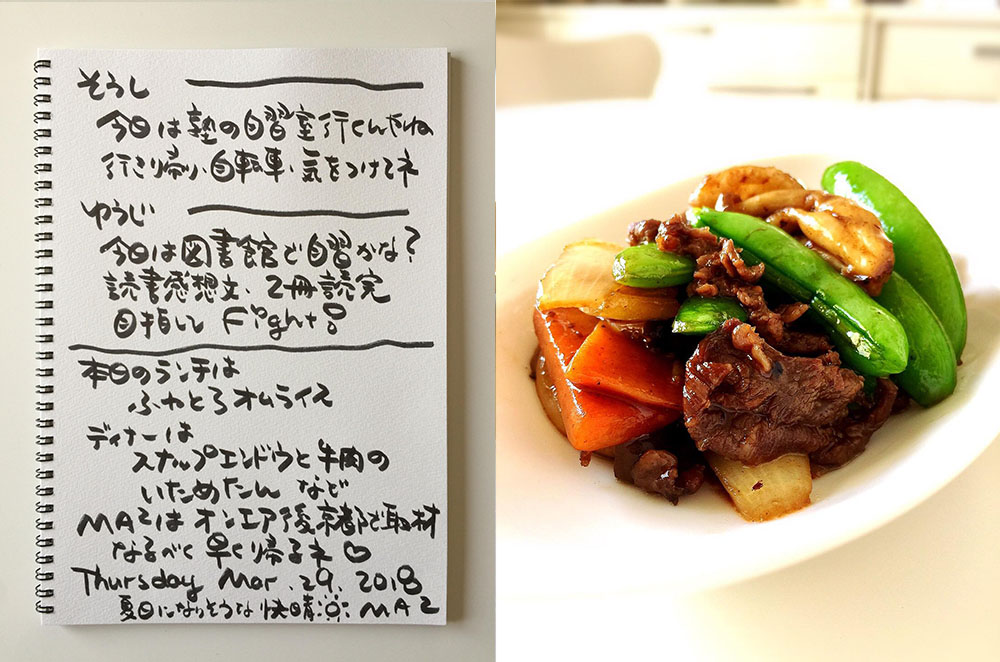 そうし
今日は塾の自習室行くんだね
行き帰り、自転車、気をつけてネ
ゆうじ
今日は図書館で自習かな?
読書感想文、2冊読完
目指して Fight!
本日のランチは
ふわとろオムライス
ディナーは
スナップエンドウと牛肉の
いためたん など
MAZはオンエア後京都で取材
なるべく早く帰るネ♡
Thursday Mar. 29. 2018
夏日になりそうな快晴 MAZ